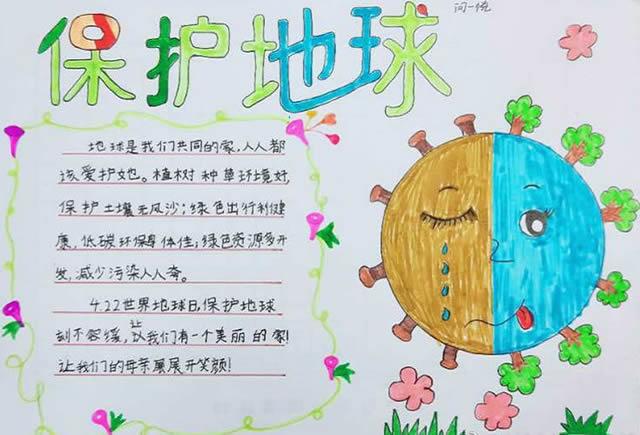 保护地球
闫一悦
地球是我们共同的家,人人都
该爱护她。植树种草环境好,
保护土壤无风沙;绿色出行利健
康,低碳环保身体佳;绿色资源多开
发,减少污染人人夸。
4.22世界地球日,保护地球
刻不容缓,让我们有一个美丽的家!
让我们的母亲展开笑颜!